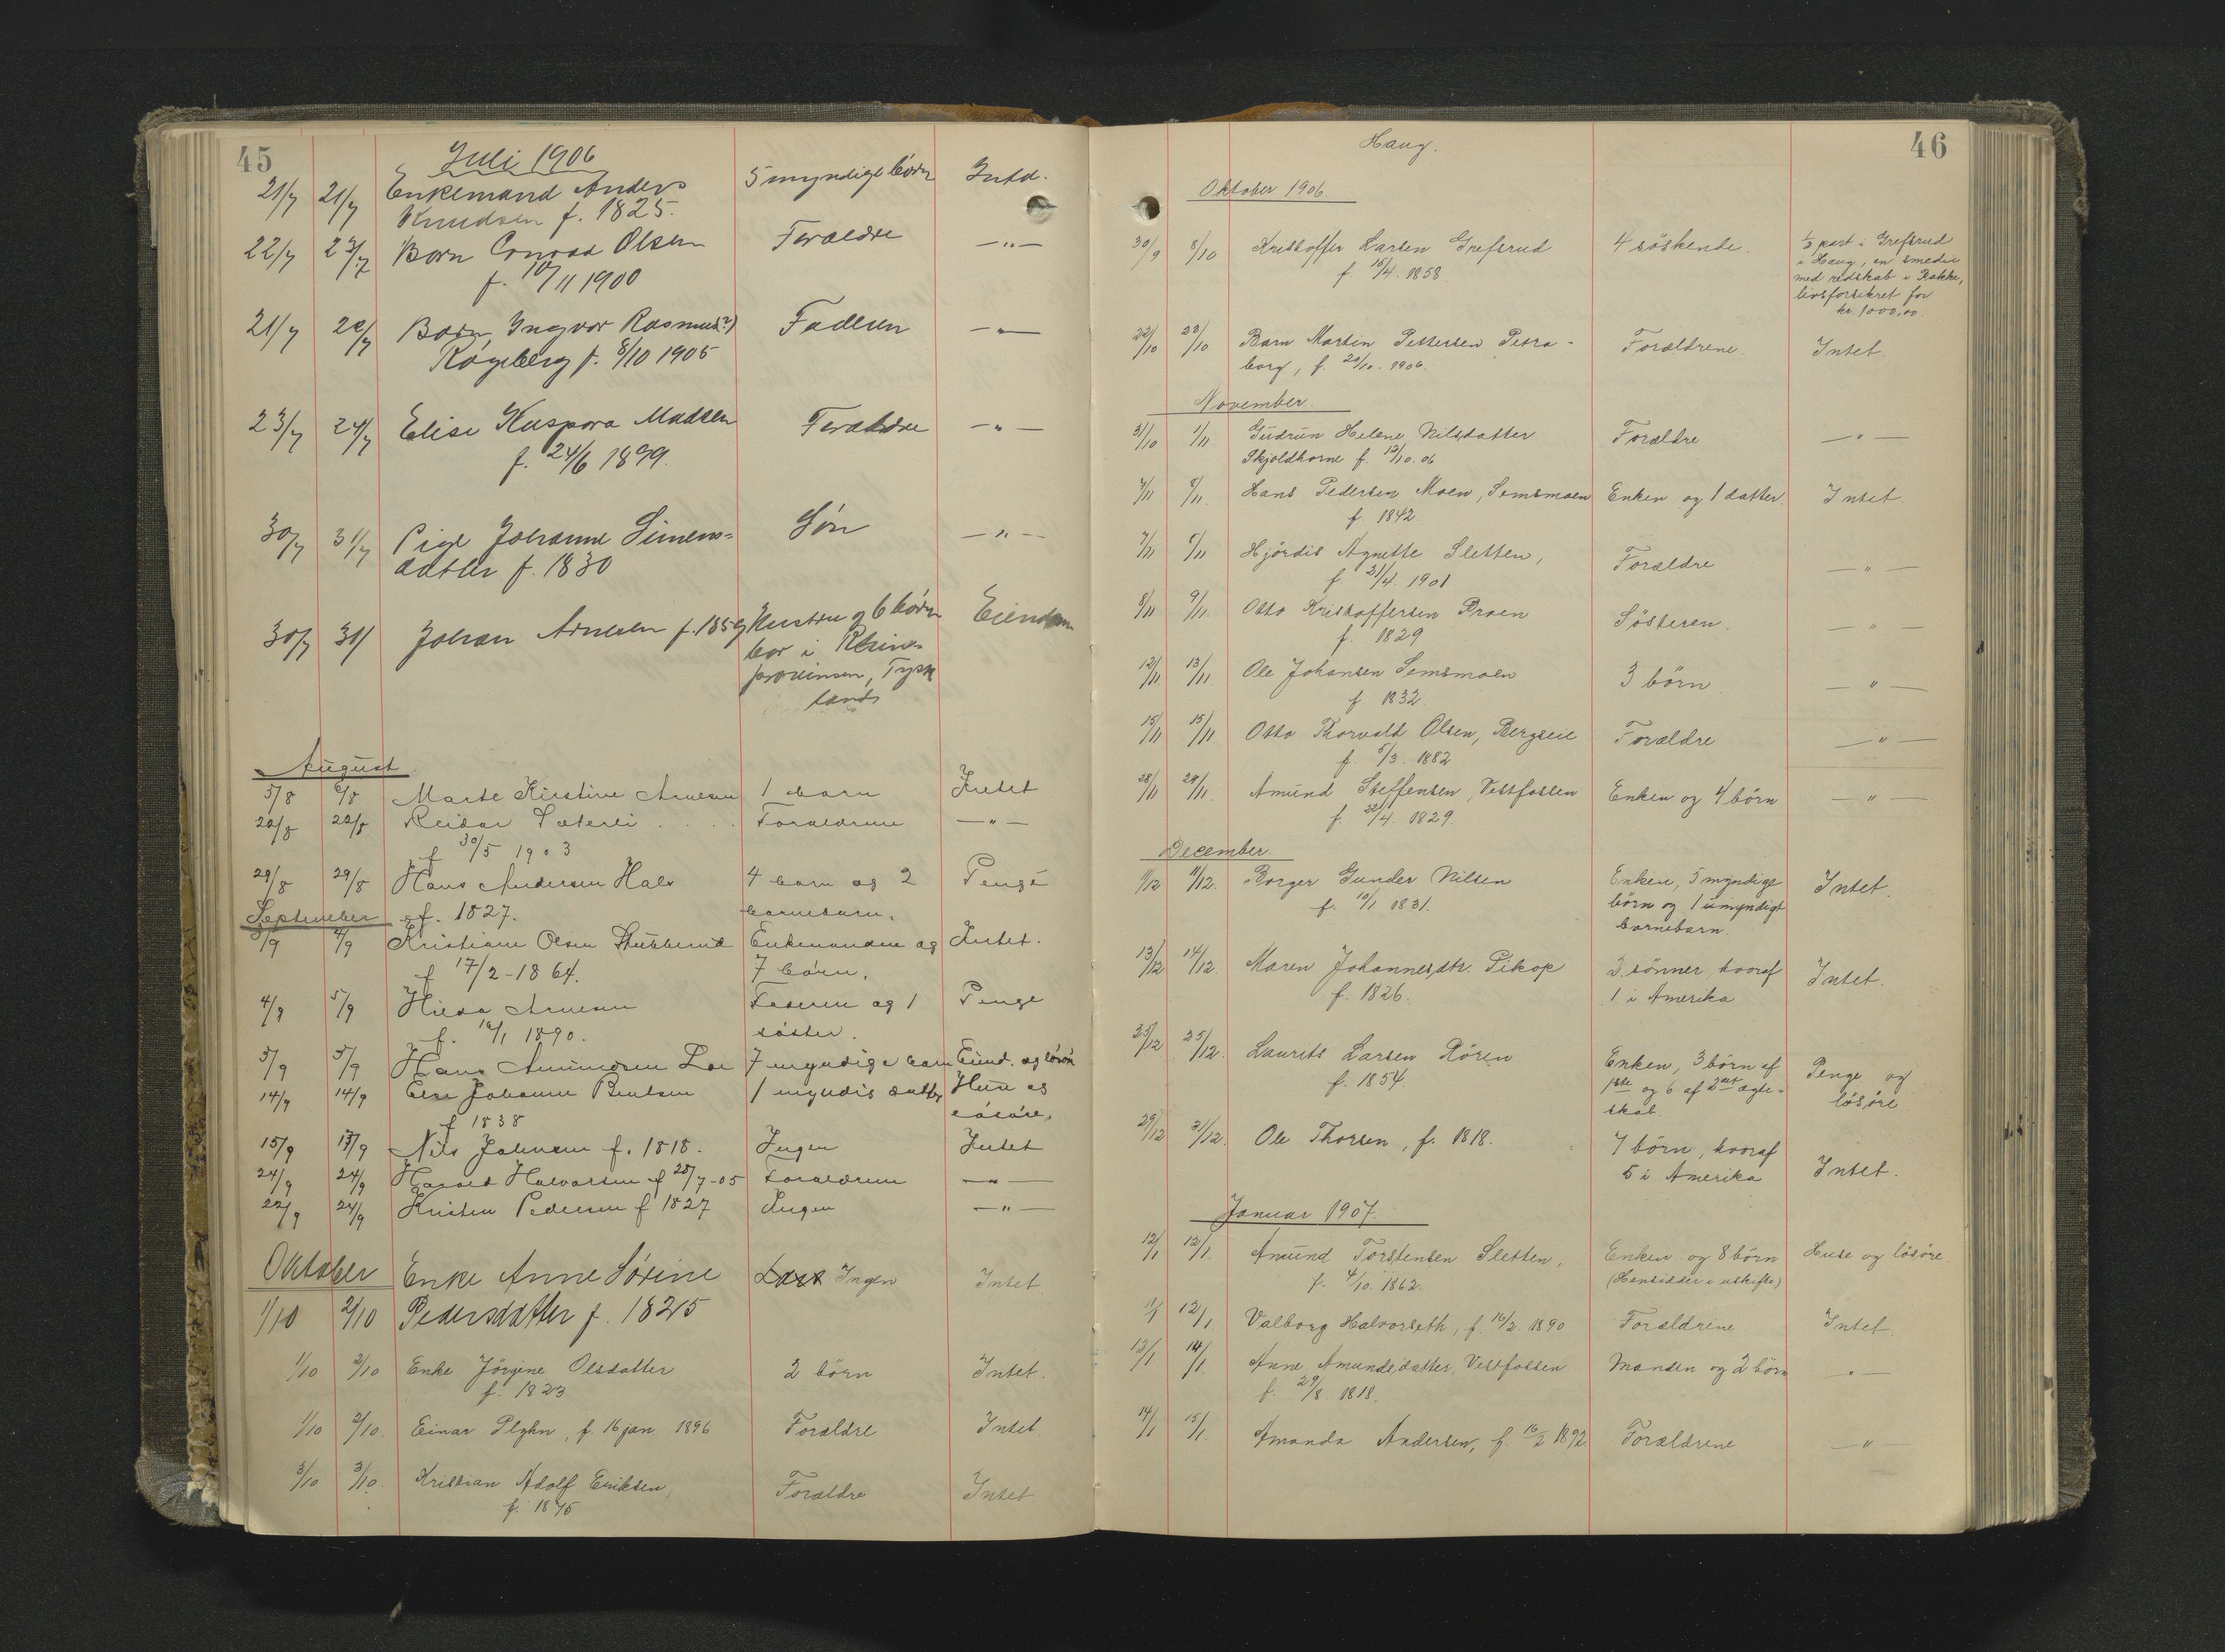 45
Juli 1906
21/7 21/7 Enkemand Anders 5 myndige børn Intet.
Knudsen f. 1825.
22/7 23/7 Barn Conrad Olsen Forældre — " —
f. 10/11 1900
21/7 22/7 Barn Ingvar Rasmus(?) Faderen — " —
Røgeberg f. 8/10 1905
23/7 24/7 Elise Kaspara Madsen Forældre — " —
f. 24/6 1899.
30/7 31/7 Pige Johanne Simens=
datter f. 1830 Søn — " —
30/7 31/ Johan Arnesen f. 1859 Hustru og 6 børn Eiendom
bor i Rhin-
provinsen, Tysk
land
August
5/8 6/8 Marte Kirstine Arnesen 1 barn Intet
20/8 22/8 Reidar Sæterli Forældrene — " —
f 30/5 1903
29/8 29/8 Hans Andersen Hals 4 barn og 2 Penge
September f. 1827. barnebarn.
3/9 4/9 Kristiane Olsen Stubberud Enkemanden og Intet.
f 17/2-1864. 7 børn.
4/9 5/9 Hilda Arnesen Faderen og 1 Penge
f. 1890. søster.
5/9 5/9 Hans Amundsen Loe 7 myndige barn Eiend. og løsøre
14/9 14/9 Else Johanne Bentsen 1 myndig datter Hus og
f 1838 løsøre.
15/9 17/9 Nils Johnsen f. 1818. Ingen Intet
24/9 24/9 Harald Halvorsen f 25/7-05 Forældrene — " —
22/9 24/9 Kristen Pedersen f 1827 Ingen — " —
Oktober Enke Anne Sørine Ingen Intet
1/10 2/10 Pedersdatter f. 1825
1/10 2/10 Enke Jörgine Olsdatter 2 börn Intet.
f. 1823
1/10 2/10. Einar Plyhn, f. 16 jan. 1896 Forældre Intet.
3/10 3/10. Kristian Adolf Eriksen, Forældre Intet
f. 1875
46
Haug.
Oktober 1906
30/9 8/10 Kristoffer Larsen Grefsrud 4 söskende. 1/3 part i Grefsrud
f. 15/4. 1858 i Haug, en smedie
med redskab i Bakke,
livsforsikret for
kr 1000,00.
22/10 23/10 Barn Martin Pettersen Petra-
borg, f. 20/10. 1906. Forældrene. Intet.
November.
31/10 1/11 Gudrun Helene Nilsdatter Forældre — " —
Skjoldhorne f. 13/10.06
7/11 8/11. Hans Pedersen Moen, Semsmoen Enken og 1 datter. Intet.
f. 1842.
7/11 8/11 Hjördis Agnette Sletten, Forældre — " —
f. 21/4. 1901
8/11 9/11. Otto Kristoffersen Broen Sösteren. — " —
f. 1829
12/11 13/11. Ole Johansen Semsmoen 3 börn. — " —
f. 1832.
15/11 15/11 Otto Thorvald Olsen, Bergseie Forældre — " —
f. 5/3. 1882
28/11 29/11. Amund Steffensen, Vestfossen Enken og 4 börn — " —
f. 22/4. 1829.
December.
11/12 11/12. Borger Gunder Nilsen Enken, 5 myndige Intet.
f. 10/1 1831. börn og 1 umyndigt
barnebarn.
13/12 14/12. Maren Johannesdtr. Pikop 2 sönner, hvoraf Intet.
f. 1826. 1 i Amerika
25/12 25/12. Laurits Larsen Rören Enken, 3 börn af Penge og
f. 1854. 1ste og 6 af 2det ægte- lösöre
skab.
29/12 31/12. Ole Thorsen, f. 1818. 7 börn, hvoraf
5 i Amerika Intet.
Januar 1907.
12/1 12/1. Amund Torstensen Sletten, Enken og 8 börn Huse og lösöre.
f. 4/10. 1862. (Hensidder i uskifte)
11/1 12/1 Valborg Halvorseth, f. 16/2. 1890 Forældrene Intet.
13/1 14/1 Anne Amundsdatter, Vestfossen Manden og 2 börn — " —
f. 29/8. 1818.
14/1 15/1. Amanda Andersen, f. 16/2 1892. Forældrene — " —